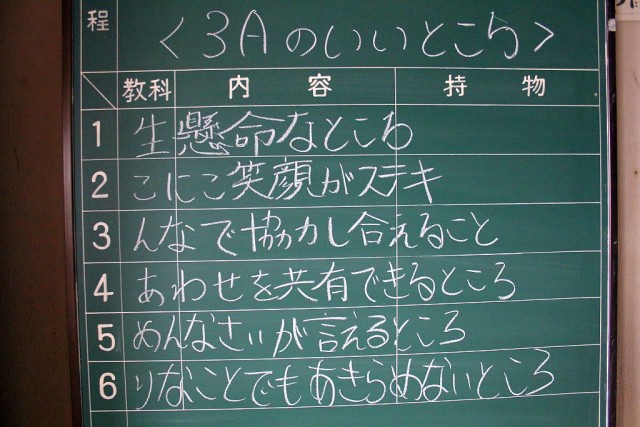 程
<3Aのいいところ>
教科 内容 持物
1 生懸命なところ
2 こにこ笑顔がステキ
3 んなで協力し合えること
4 あわせを共有できるところ
5 めんなさいが言えるところ
6 りなことでもあきらめないところ